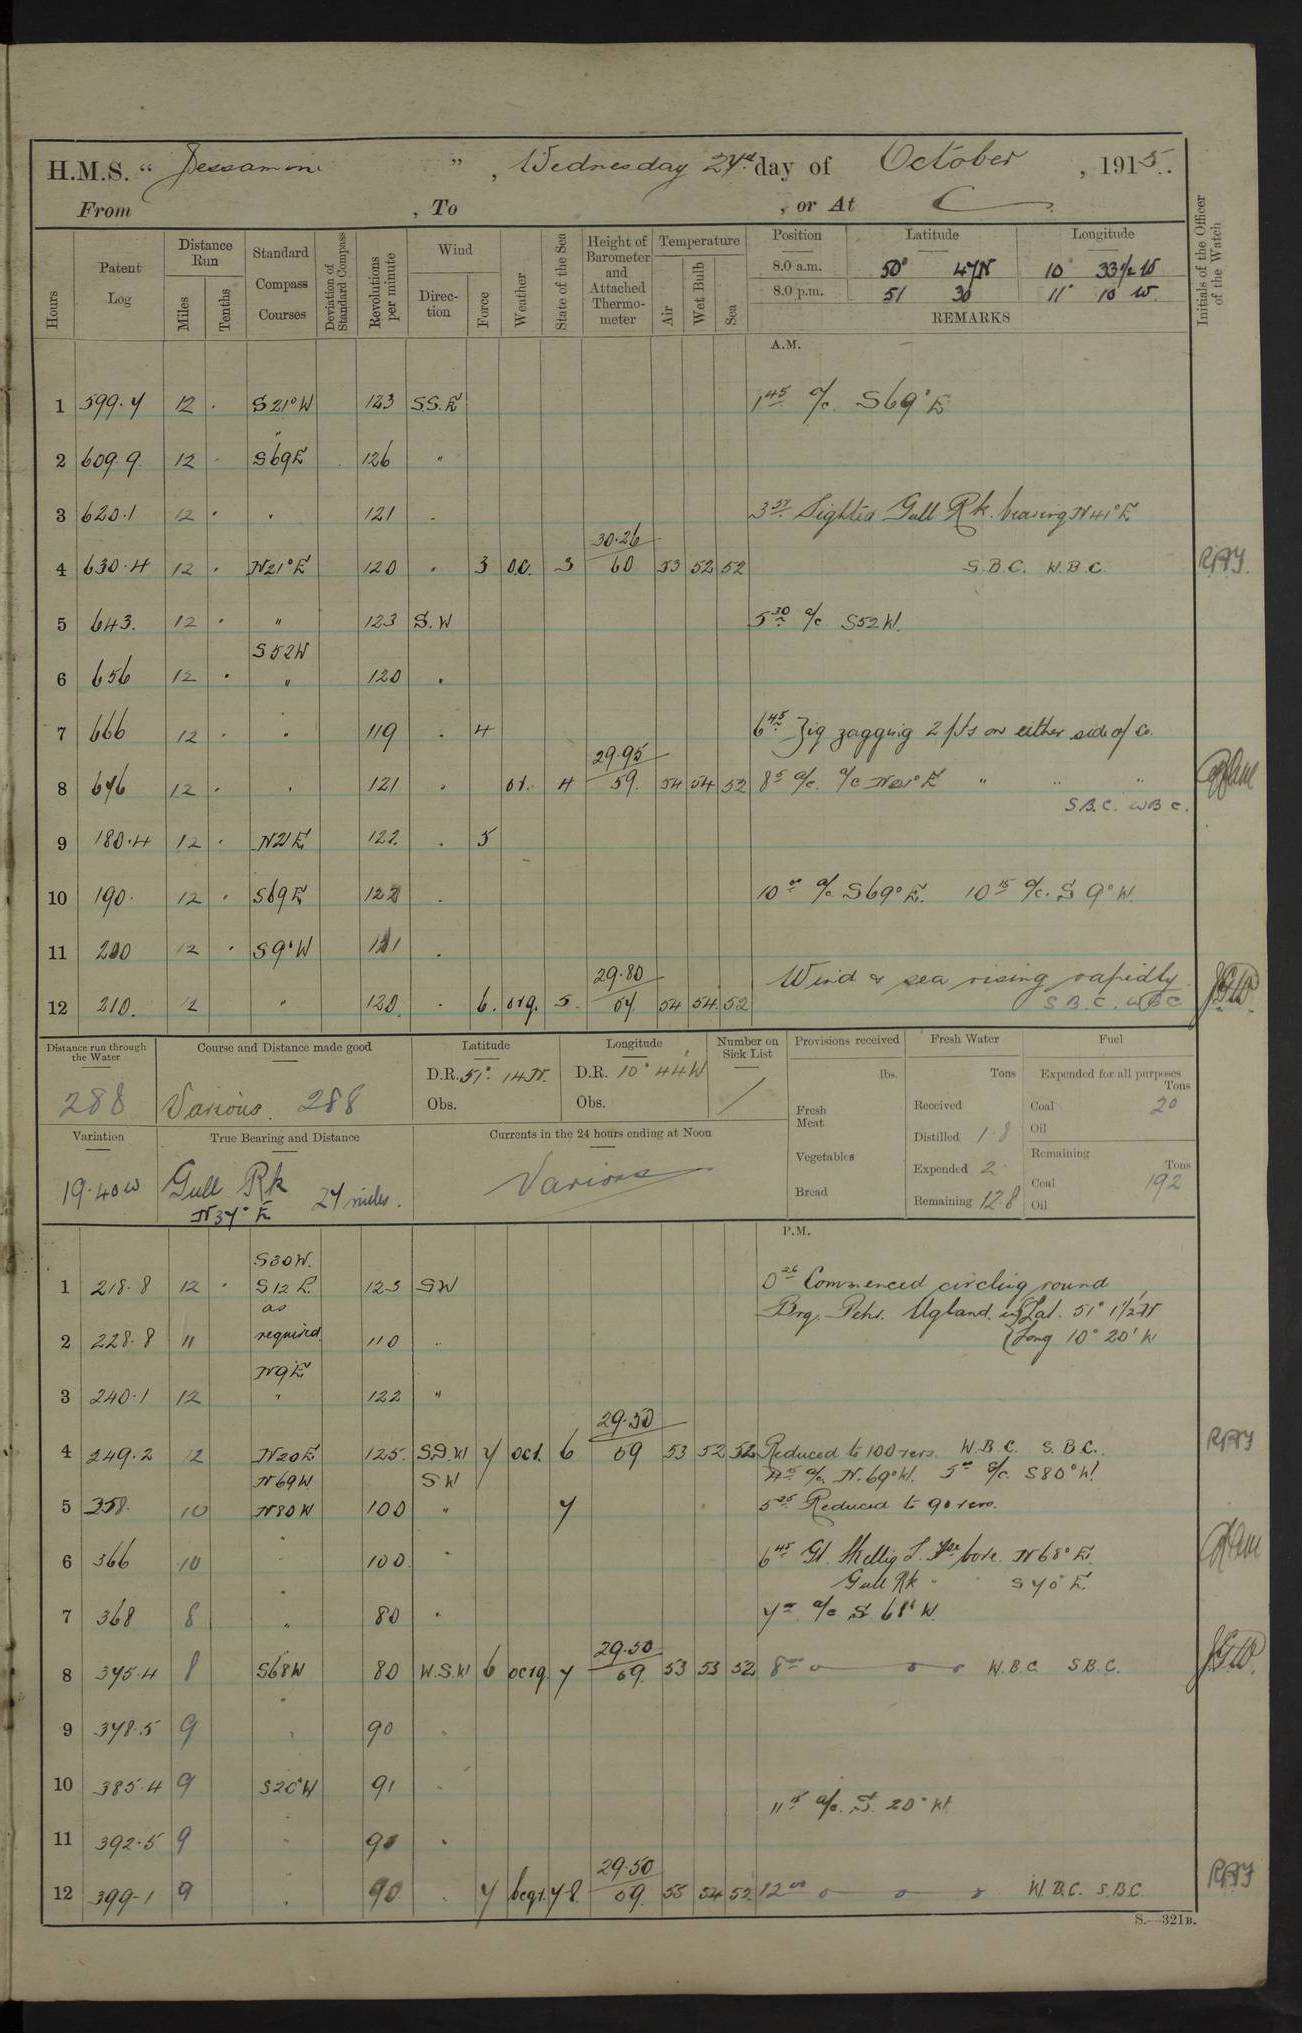 H.M.S. “ Jessamine ” , Wednesday 27th day of October , 1915.
From , To , or At
Hours
Patent Log
Distance Run
Miles
Tenths
Standard Compass Courses
Deviation of Standard Compass
Revolutions per minute
Wind
Direction
Force
Weather
State of the Sea
Height of Barometer and Attached Thermometer
Temperature
Air
Wet Bulb
Sea
Position Latitude Longitude
8.0 a.m. 50° 47 N 10° 33½ W
8.0 p.m. 51 30 11° 10 W.
REMARKS
Initials of the Officer of the Watch
A.M.
1 599.7 12 . S21°W 123 S.S.E 1 45 a/c S69°E
2 609.9 12 . S69E 126 "
3 620.1 12 . " 121 . 3 57 Sighted Gull Rk. bearing N41°E
4 630.4 12 . N21°E 120 . 3 o.c. 3 30.26 60 53 52 52 S.B.C. W.B.C.
5 643. 12 . " 123 S.W 5 30 a/c S52W.
S52W
6 656 12 . " 120 .
7 666 12 . . 119 . 4 6 45 Zig zagging 2 pts on either side of Co.
8 676 12 . . 121 . 4 29.95 59. 54 54 52 8 5 a/c. a/c N21°E " " "
S.B.C. W B C.
9 180.4 12 . N21E 122. . 5
10 190. 12 . S69E 122 . 10 00 a/c S69°E. 10 15 a/c. S 9° W.
11 200 12 . S9°W 121 .
Wind & sea rising rapidly.
12 210. 12 " 120. . 6. org. 5 29.80 54 54. 52 S.B.C. W B C
Distance run through the Water
288
Course and Distance made good
Various. 288
Latitude
D.R. 51° 14 N.
Obs.
Longitude
D.R. 10° 44' W
Obs.
Number on Sick List
/
Provisions received
lbs.
Fresh Meat
Vegetables
Bread
Fresh Water
Tons
Received
Distilled 1.8
Expended 2
Remaining 12.8
Fuel
Expended for all purposes
Tons
Coal 20
Oil
Remaining
Tons
Coal 192
Oil
Variation
19.40 W
True Bearing and Distance
Gull Rk
N37°E 27 miles.
Currents in the 24 hours ending at Noon
Various
P.M.
S30W.
1 218.8 12 . S12E 123 SW 0 26 Commenced circling round
as
Brq. Pehr. Ugland. in {Lat. 51° 1½' N
2 228.8 " required. 110 " {Long 10° 20' W
N9E
3 240.1 12 " 122 "
4 249.2 12 N20E 125. S.W 7 ocr. 6 29.50 59 53 52 52 Reduced to 100 revs. W.B.C. S.B.C.
N69W SW 4 15 a/c. N.69°W. 5 00 a/c. S80°W.
5 358. 10 N80W 100 " 7 5 25 Reduced to 90 revs.
6 366 10 " 100 . 6 45 Gt. Skellig L. Ho bore N68°E.
Gull Rk " S70°E.
7 368 8 " 80 . 7 00 a/c S 68° W.
8 375.4 8 S68W 80 W.S.W 6 ocrq. 7 29.50 59. 53 53 52 8 00 W.B.C S.B.C.
9 378.5 9 " 90 .
10 385.4 9 S20°W 91 .
11 15 a/c. S. 20° W.
11 392.5 9 " 90 .
12 399.1 9 " 90 . 7 bcqr. 7-8. 29.50 59. 55 54 52 12 00 W.B.C. S.B.C.
S.—321B.